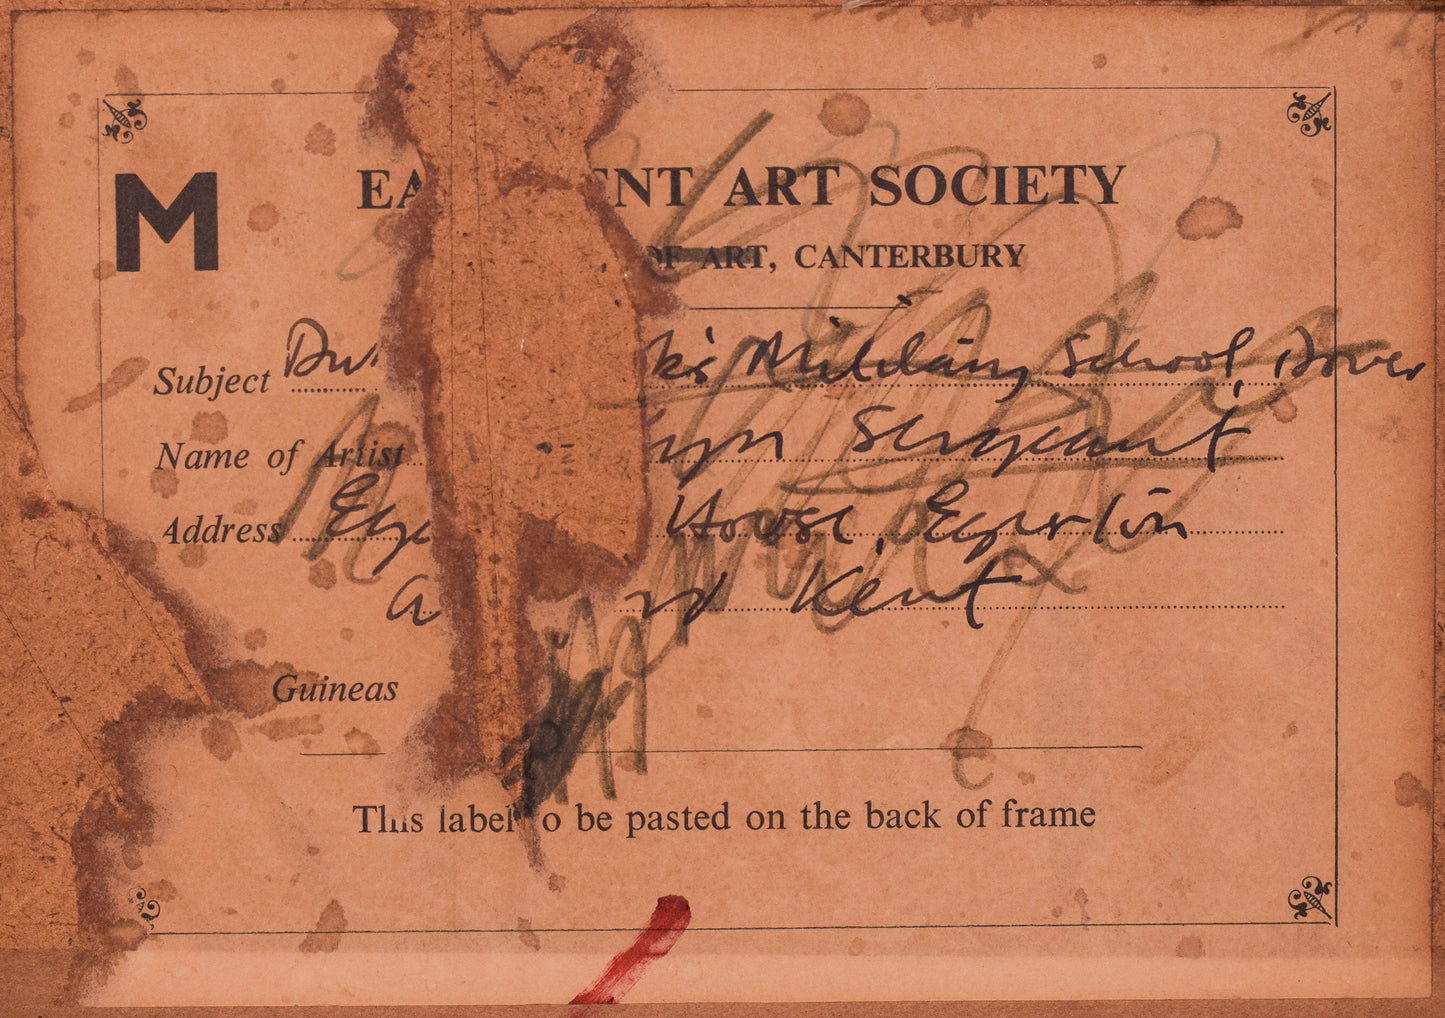 M
EA ENT ART SOCIETY
OF ART, CANTERBURY
Subject Du k's Military School, Dover
Name of Artist lyn Sergeant
Address Ege House, Egerton
Kent
Guineas
This label o be pasted on the back of frame